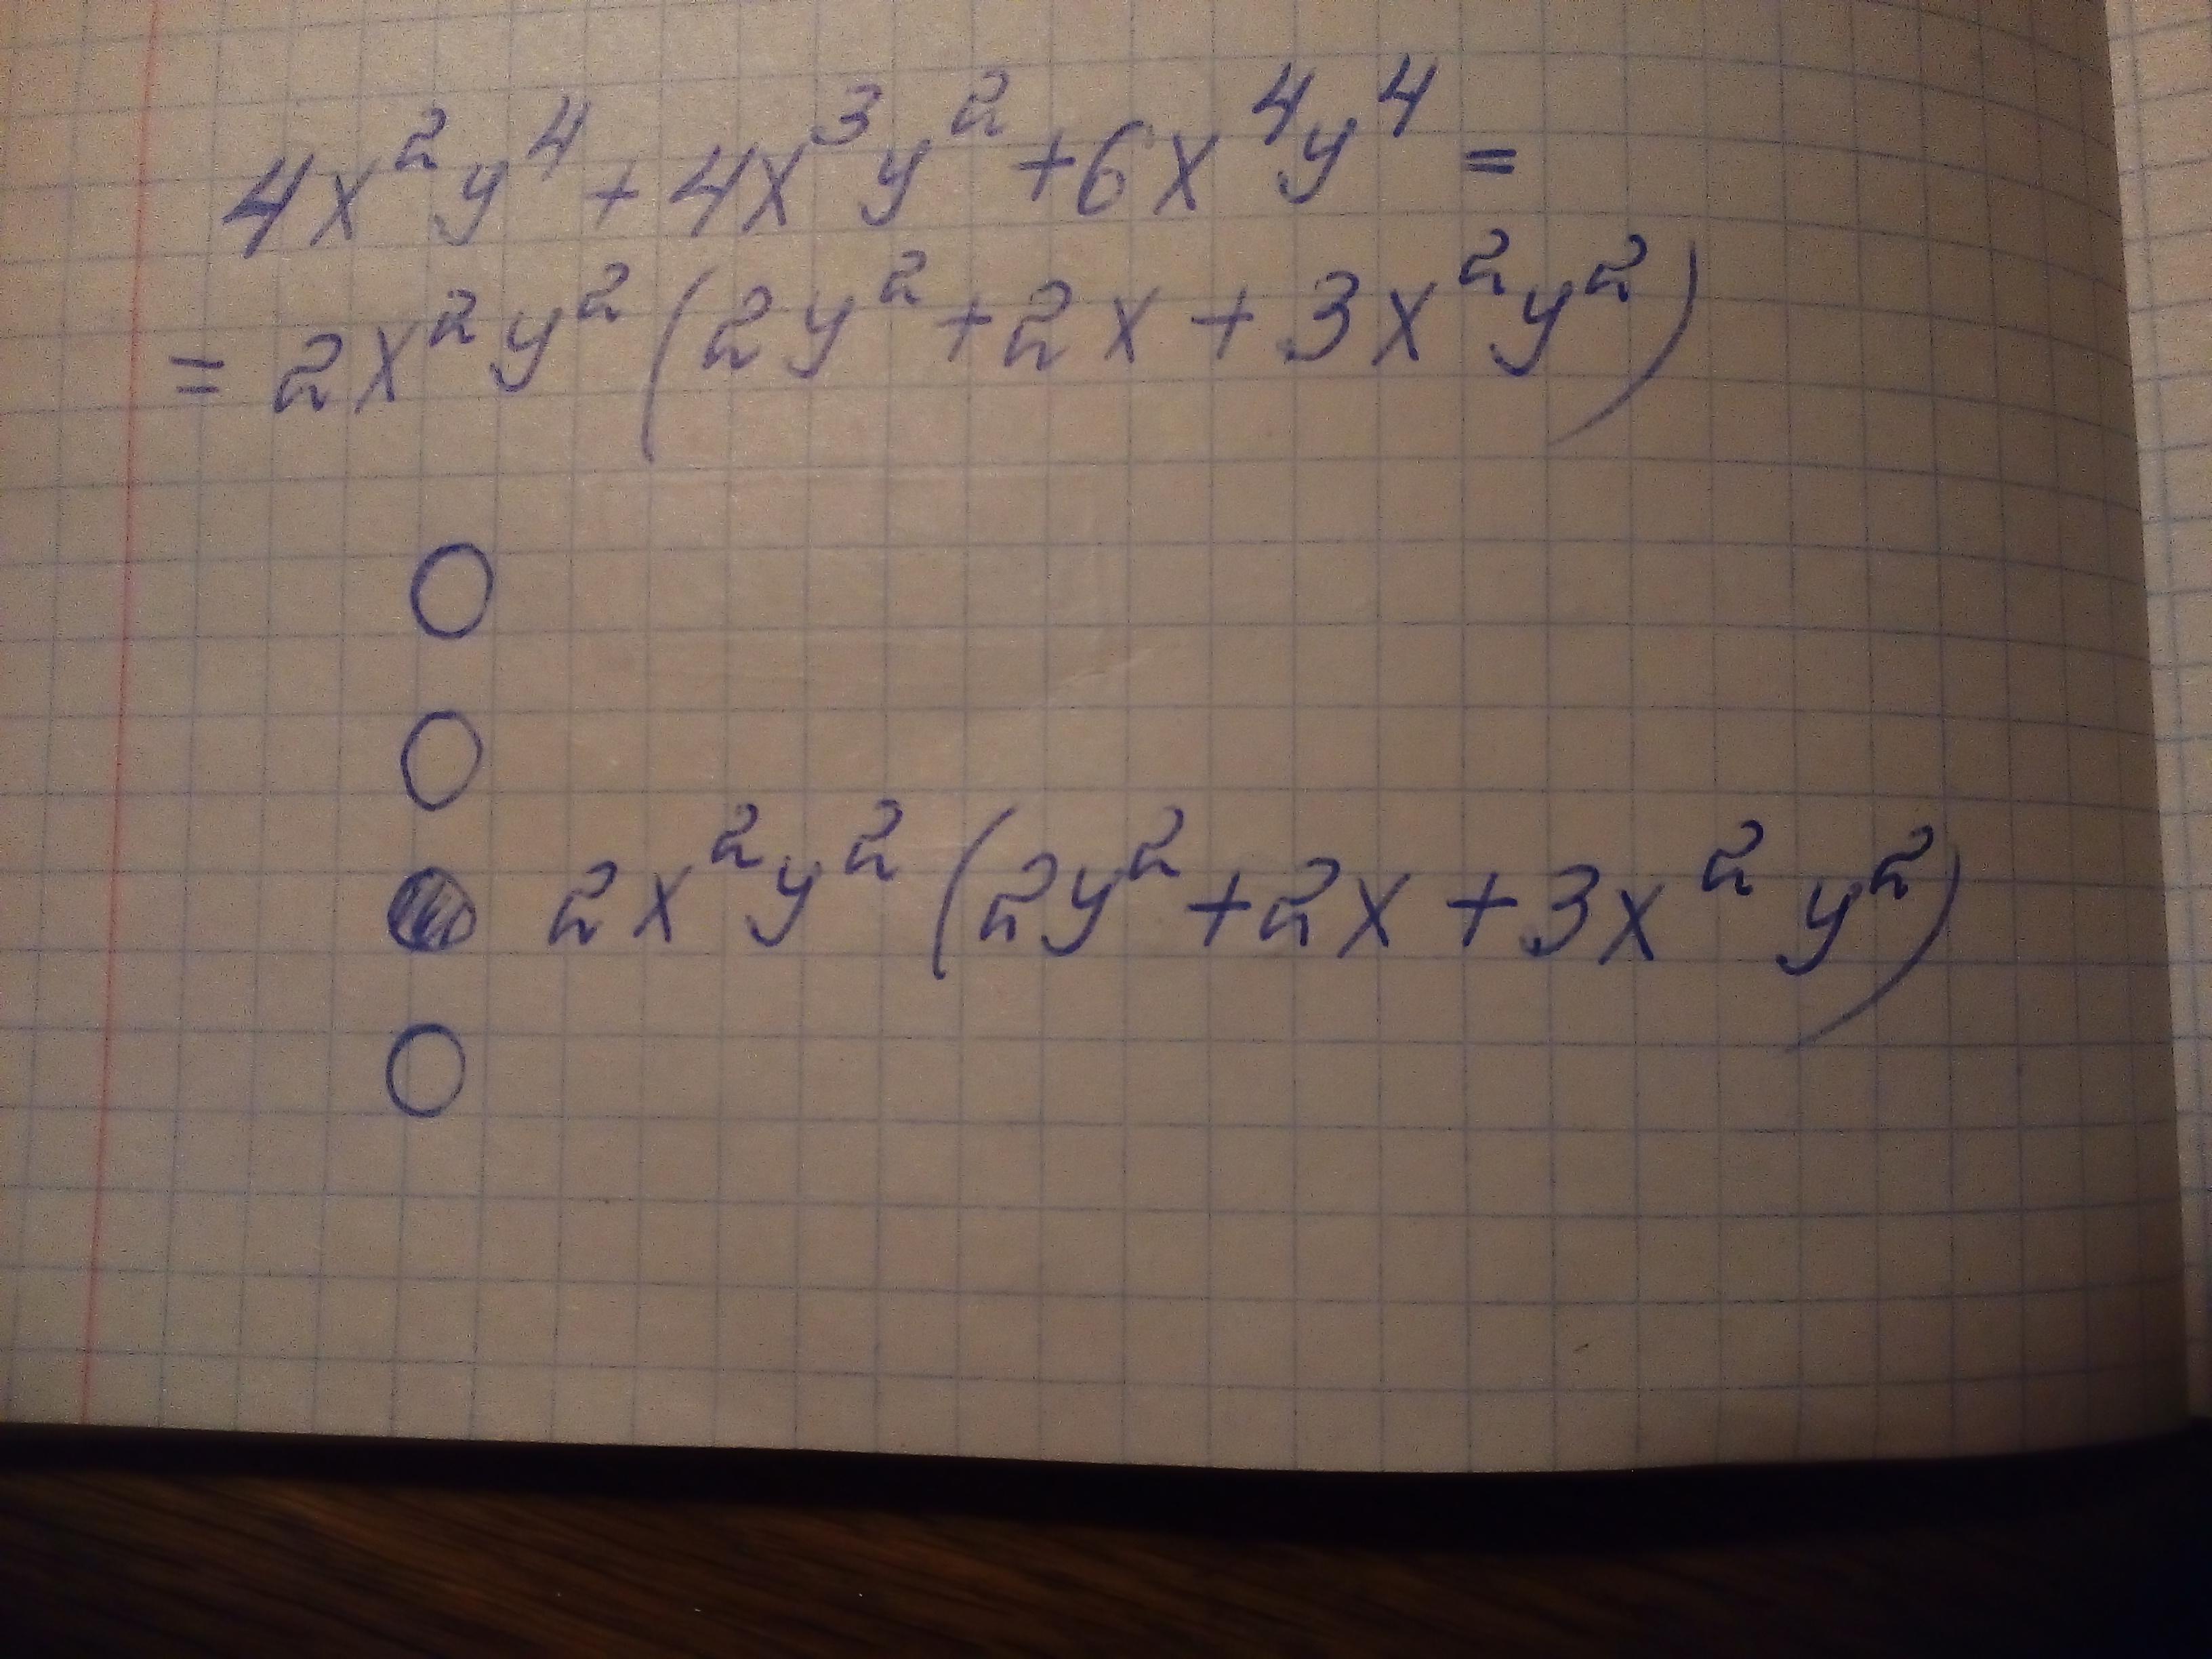 4x²y⁴ + 4x³y² + 6x⁴y⁴ =
= 2x²y² (2y² + 2x + 3x²y²)
2x²y² (2y² + 2x + 3x²y²)